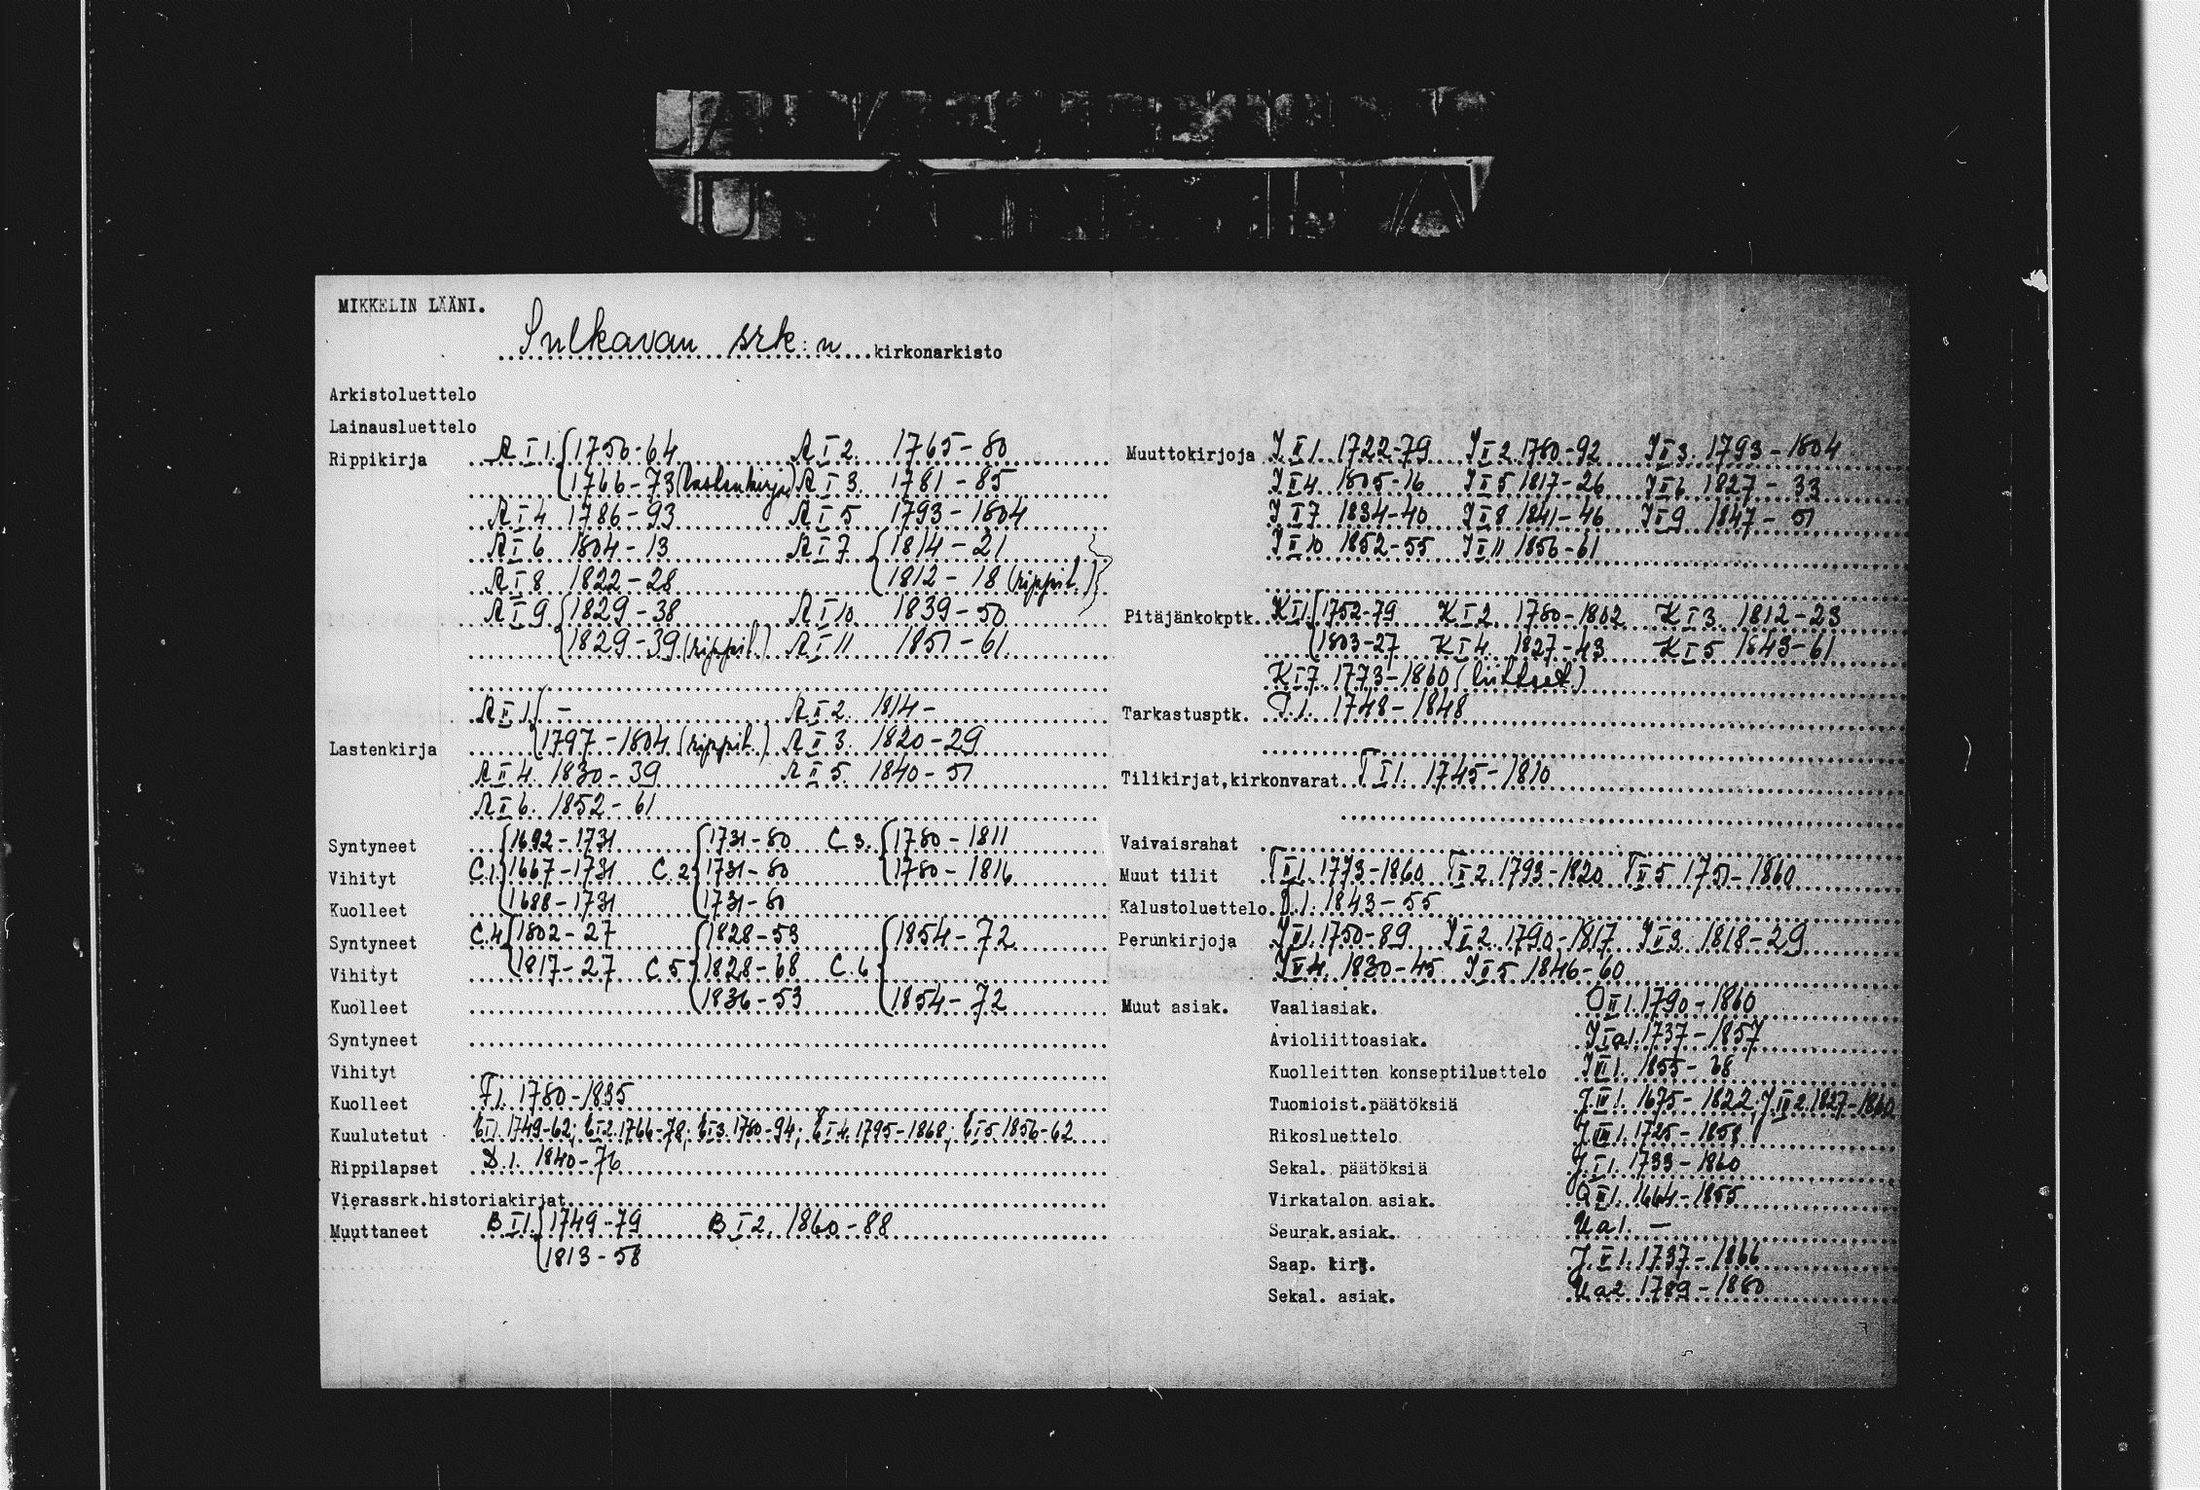 MIKKELIN LÄÄNI.
Sulkavan srk:n kirkonarkisto
Arkistoluettelo
Lainausluettelo
Rippikirja A I 1. { 1750-64 A I 2. 1765-80
1766-73 (lastenkirja) A I 3. 1781-85
A I 4 1786-93 A I 5 1793-1804
A I 6 1804-13 A I 7 { 1814-21
A I 8 1822-28 1812-18 (rippil.) }
A I 9 { 1829-38 A I 10 1839-50
1829-39 (rippil.) A I 11 1851-61
A II 1. { - A II 2. 1814-
Lastenkirja 1797-1804 (rippil.) A II 3. 1820-29
A II 4. 1830-39 A II 5. 1840-51
A II 6. 1852-61
Syntyneet { 1692-1731 { 1731-80 C.3. { 1780-1811
Vihityt C.1. 1667-1731 C.2 1731-80 1780-1816
Kuolleet 1688-1731 1731-80
Syntyneet C.4 { 1802-27 { 1828-53 { 1854-72
Vihityt 1817-27 C.5 1828-68 C.6
Kuolleet 1836-53 1854-72
Syntyneet
Vihityt
Kuolleet F1. 1780-1835
Kuulutetut E I 1. 1749-62; E I 2. 1766-78; E I 3. 1780-94; E I 4. 1795-1868; E I 5. 1856-62
Rippilapset D.1. 1840-76
Vierassrk.historiakirjat
Muuttaneet B I 1. { 1749-79 B I 2. 1860-88
1813-58
Muuttokirjoja I II 1. 1722-79 I II 2. 1780-92 I II 3. 1793-1804
I II 4. 1805-16 I II 5 1817-26 I II 6 1827-33
I II 7 1834-40 I II 8 1841-46 I II 9 1847-51
I II 10 1852-55 I II 11 1856-61
Pitäjänkokptk. K I 1. { 1752-79 K I 2. 1780-1802 K I 3. 1812-23
1803-27 K I 4. 1827-43 K I 5 1843-61
K I 7. 1773-1860 (liitteet)
Tarkastusptk. 1. 1748-1848
Tilikirjat,kirkonvarat T I 1. 1745-1810
Vaivaisrahat
Muut tilit T II 1. 1773-1860 T II 2. 1793-1820 T II 5 1751-1860
Kalustoluettelo 1. 1843-55
Perunkirjoja 1750-89 1790-1817 1818-29
1830-45 1846-60
Muut asiak. Vaaliasiak. O II 1. 1790-1860
Avioliittoasiak. I I a 1. 1737-1857
Kuolleitten konseptiluettelo 1855-68
Tuomioist.päätöksiä 1675-1822, 1827-1860
Rikosluettelo 1725-1858
Sekal. päätöksiä J I 1. 1733-1860
Virkatalon asiak. 1664-1855
Seurak.asiak. U a 1. -
Saap. kirj. 1737-1866
Sekal. asiak. U a 2 1789-1880